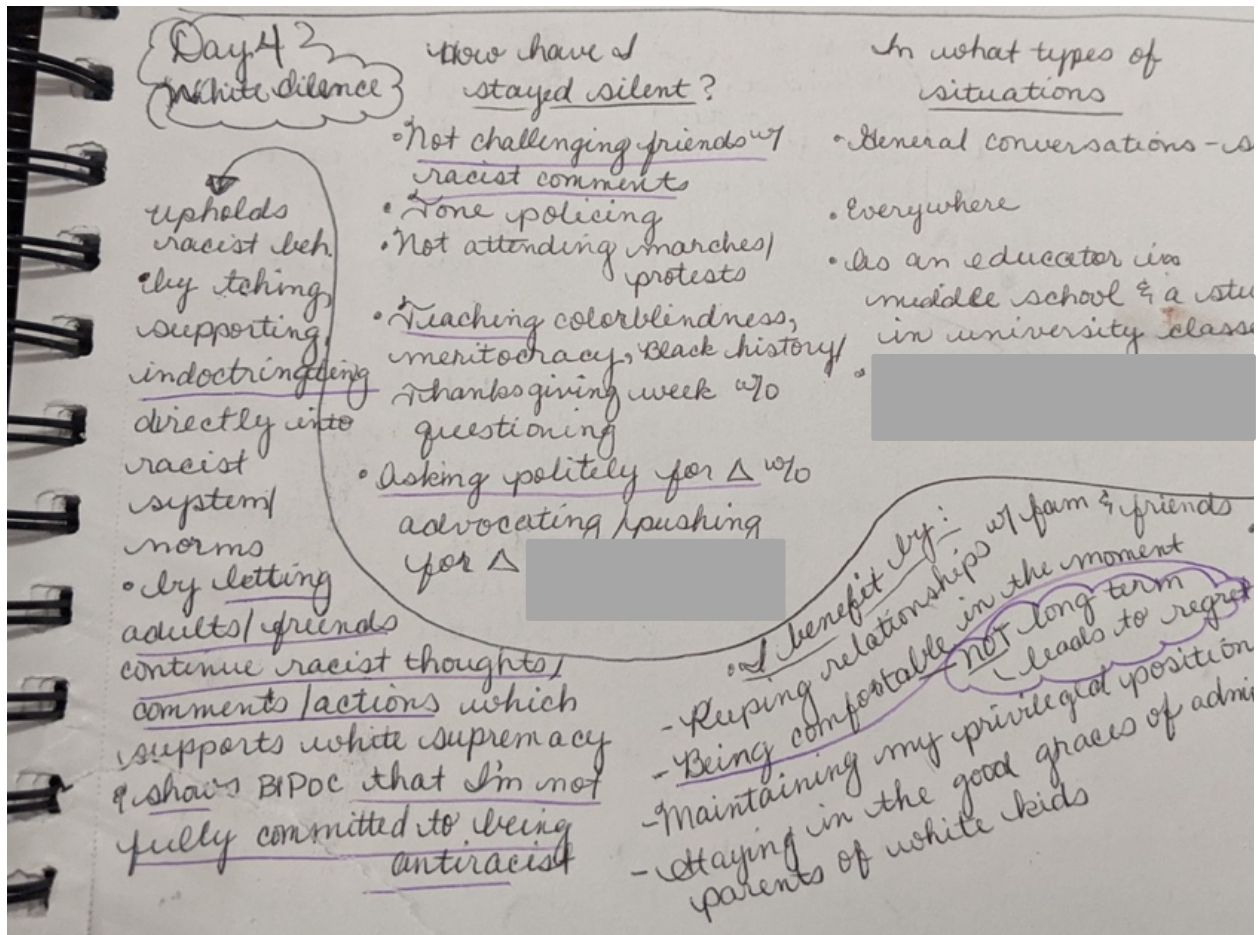 Day 4
White Silence
How have I
stayed silent?
• Not challenging friends w/
racist comments
• Tone policing
• Not attending marches/
protests
• Teaching colorblindness,
meritocracy, Black history/
Thanksgiving week w/o
questioning
• Asking politely for Δ w/o
advocating/pushing
for Δ
In what types of
situations
• General conversations -
• Everywhere
• As an educator in
middle school & a
in university
•
upholds
racist beh.
• by tching,
supporting,
directly into
racist
system/
norms
• by letting
adults/friends
continue racist thoughts/
comments/actions which
supports white supremacy
& shows BIPOC that I'm not
fully committed to being
antiracist
• I benefit by:
- Keeping relationships w/ fam & friends
- Being comfortable in the moment
- not long term
leads to regret
- Maintaining my privileged position
- Staying in the good graces of
parents of white kids